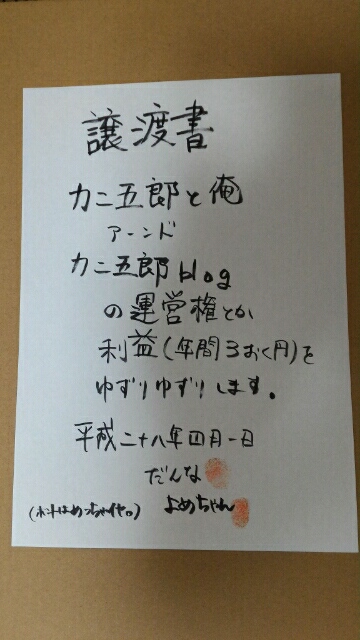 譲渡書
カニ五郎と俺
アーンド
カニ五郎blog
の運営権とか
利益(年間3おく円)を
ゆずりゆずりします。
平成二十八年四月一日
だんな
よめちゃん
(ホントはめっちゃイヤ。)